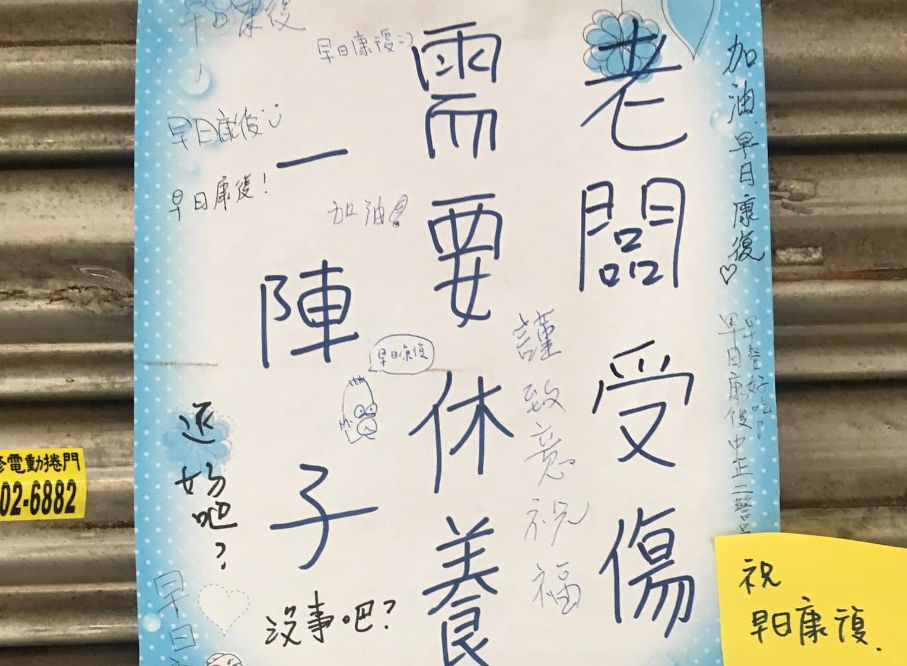 老闆受傷
需要休養
一陣子
加油.早日康復♡
早餐好吃!
早日康復中正二警
謹致意祝福
早日康復:)
早日康復
早日康復
早日康復!
加油
早日康復
还好吧?
沒事吧?
早日
祝
早日康復.
電動捲門
02-6882